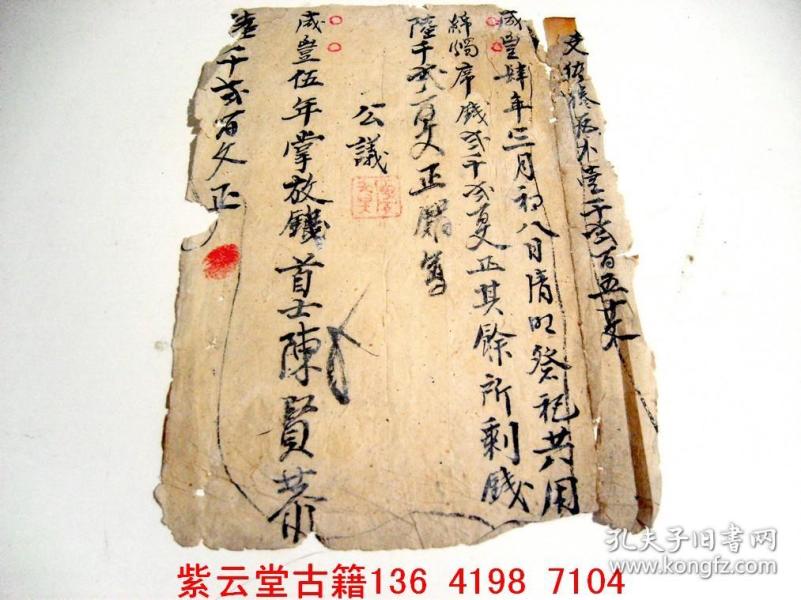 咸豐肆年三月初八日清明祭祀共用
席錢弍千弍百文正其餘所剩錢
陸千弍百文正
公議
咸豐伍年掌放錢首士陳賢恭
壹千弍百文正
孔夫子旧书网
www.kongfz.com
紫云堂古籍136 4198 7104